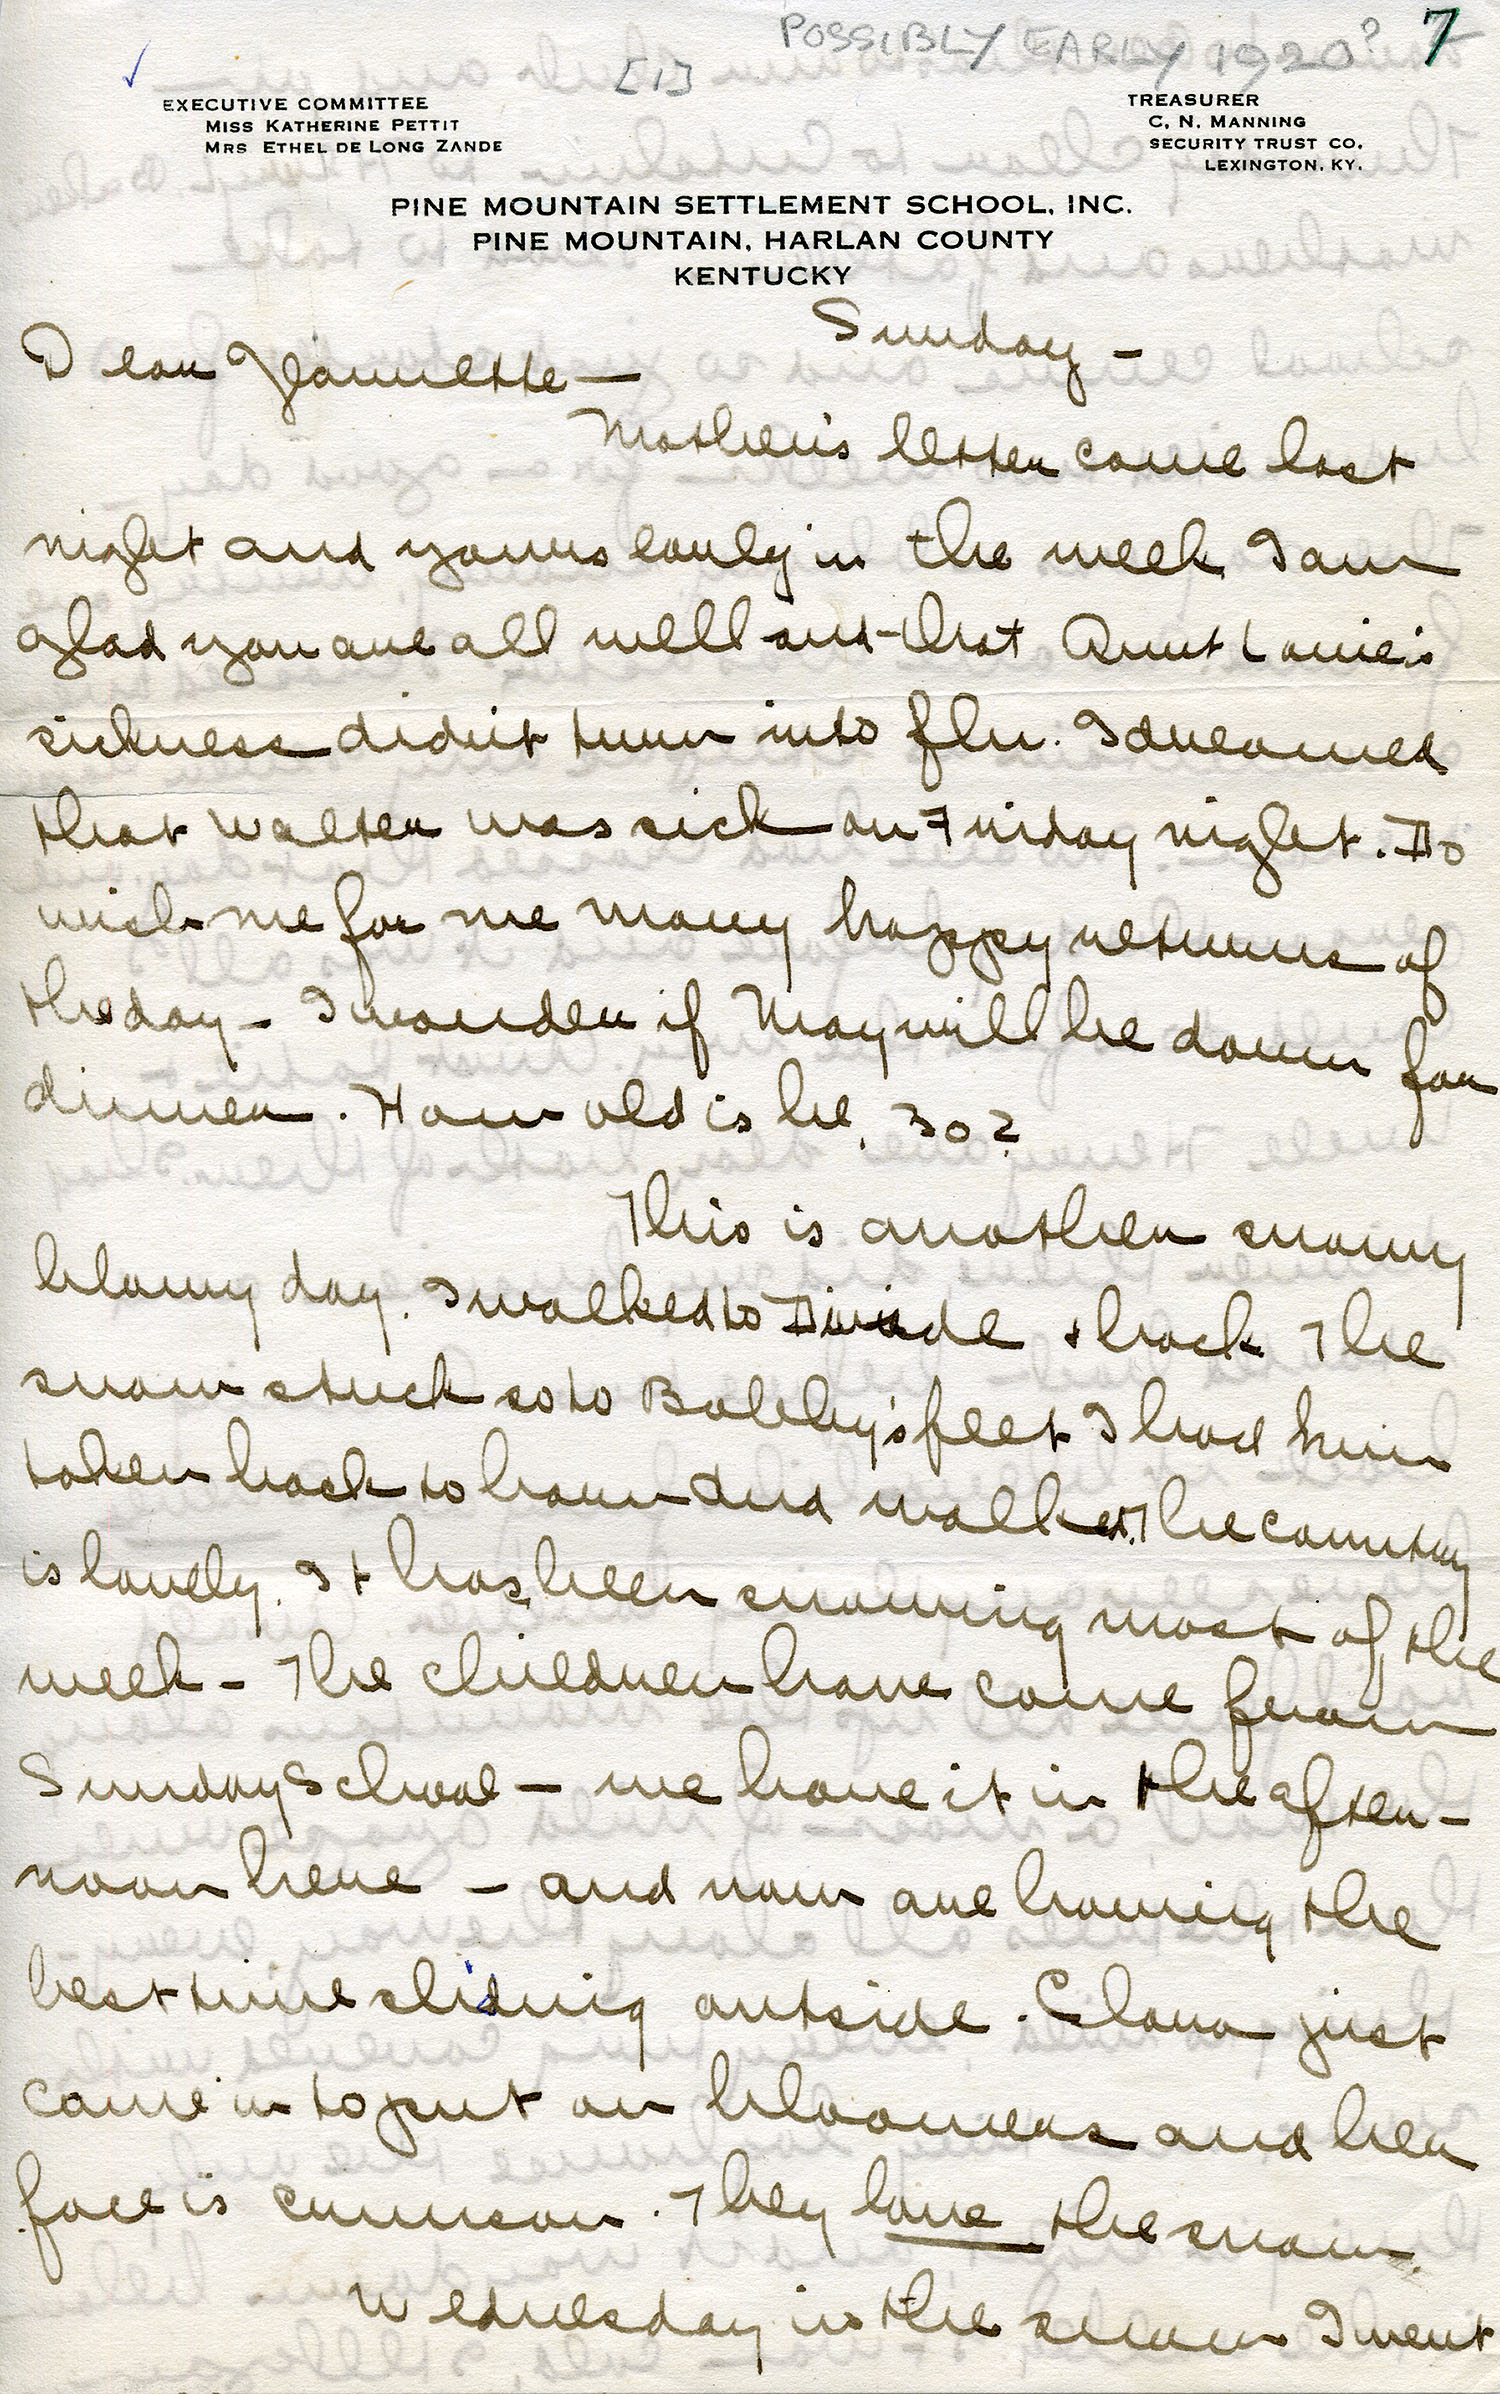 POSSIBLY EARLY 1920? 7
[1]
EXECUTIVE COMMITTEE
MISS KATHERINE PETTIT
MRS ETHEL DE LONG ZANDE
TREASURER
C. N. MANNING
SECURITY TRUST CO.
LEXINGTON, KY.
PINE MOUNTAIN SETTLEMENT SCHOOL, INC.
PINE MOUNTAIN, HARLAN COUNTY
KENTUCKY
Sunday –
Dear Jannette —
Mother's letter came last
night and yours early in the week I am
glad you are all well and that Aunt Louie's
sickness didn't turn into flu. I dreamed
that Walter was sick on Friday night. Do
wish me for me many happy returns of
the day – I wonder if May will be down for
dinner. How old is he, 30?
This is another snowy
blowy day. I walked to Divide & back The
snow stuck so to Bobby's feet I had him
taken back to barn and walked. The country
is lovely. It has been snowing most of the
week – The children have come from
Sunday School – we have it in the after-
noon here – and now are having the
best time sliding outside. Clara just
came in to put on bloomers and her
face is crimson. They love the snow.
Wednesday in the snow I went